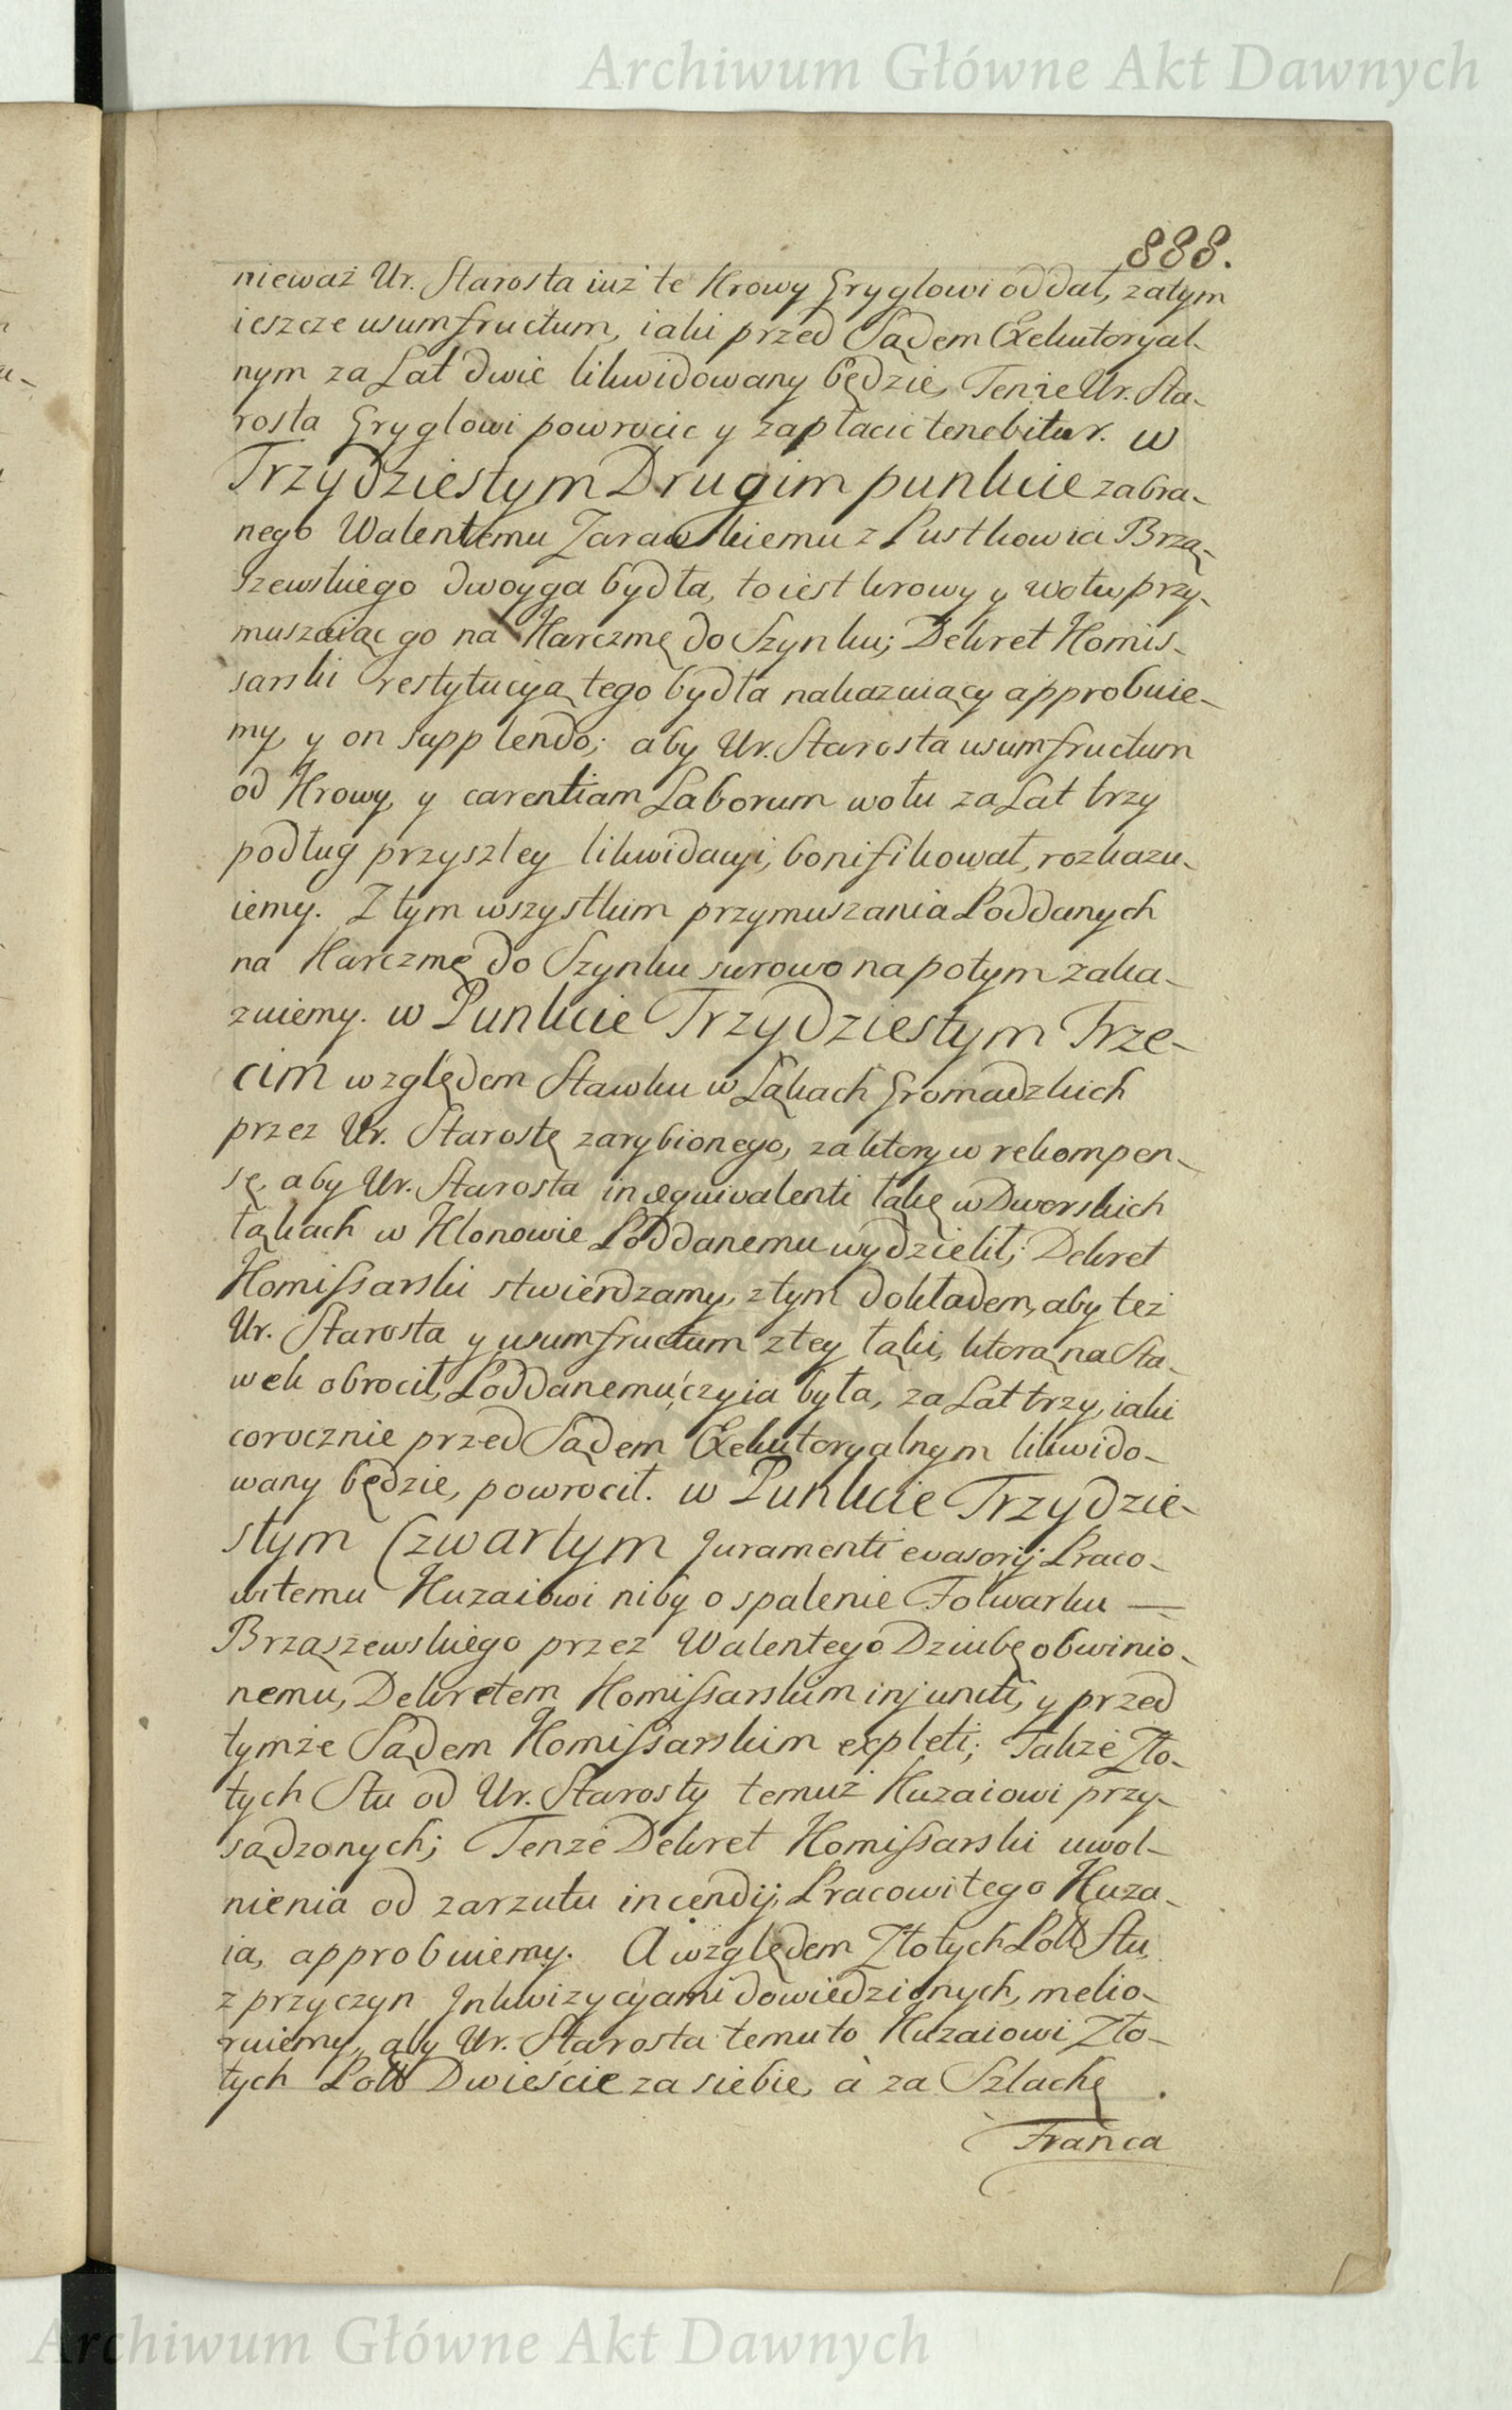 Archiwum Główne Akt Dawnych
888.
nieważ Ur. Starosta iuż te Krowy Gryglowi oddał, zatym
ieszcze usumfructum, iaki przed Sądem Exekutoryal-
nym za Lat dwie likwidowany będzie, Tenże Ur. Sta-
rosta Gryglowi powrocic y zapłacic tenebitur. w
Trzydziestym Drugim punkcie zabra-
nego Walentemu Zarawskiemu z Pustkowia Brzą-
szewskiego dwoyga bydła, to iest krowy y wołu, przy-
muszaiąc go na Karczmę do Szynku; Dekret Kommis-
sarski restytucyą tego bydła nakazuiący approbuie-
my, y on supplendo; aby Ur. Starosta usumfructum
od Krowy, y carentiam Laborum wołu za Lat trzy
podług przyszłey likwidacyi, bonifikował, rozkazu-
iemy. Z tym wszystkim przymuszania Poddanych
na Karczmę do Szynku surowo na potym zaka-
zuiemy. w Punkcie Trzydziestym Trze-
cim względem Stawku w Łąkach Gromadzkich
przez Ur. Starostę zarybionego, za ktory w rekompen-
sę, aby Ur. Starosta in æquivalenti łąkę w Dworskich
łąkach w Klonowie Poddanemu wydzielił; Dekret
Komissarski stwierdzamy, z tym dokładem, aby też
Ur. Starosta y usumfructum z tey łąki, ktorą na Sta-
wek obrocił, Poddanemu, czyia była, za Lat trzy, iaki
corocznie przed Sądem Exekutoryalnym likwido-
wany będzie, powrocił. w Punkcie Trzydzie-
stym Czwartym Juramenti evasorij Praco-
witemu Kuzaiowi niby o spalenie Folwarku —
Brząszewskiego przez Walentego Dziubę obwinio-
nemu, Dekretem Komissarskim injuncti, y przed
tymże Sądem Komissarskim expleti; Także Zło-
tych Stu od Ur. Starosty temuż Kuzaiowi przy-
sądzonych; Tenże Dekret Komissarski uwol-
nienia od zarzutu incendij, Pracowitego Kuza-
ia, approbuiemy. A względem Złotych Polł Stu,
z przyczyn Inkwizycyami dowiedzionych, melio-
ruiemy, aby Ur. Starosta temuto Kuzaiowi Zło-
tych Polł Dwieście za siebie, à za Szlachę
Franca
Archiwum Główne Akt Dawnych